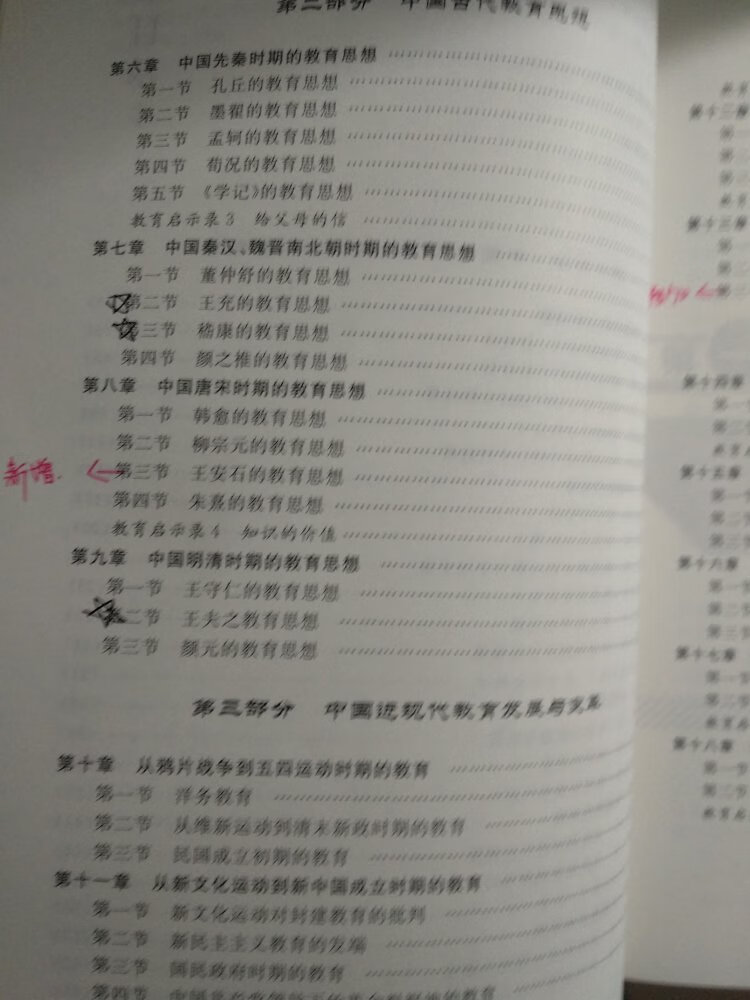 第二部分 中国古代教育思想
第六章 中国先秦时期的教育思想
第一节 孔丘的教育思想
第二节 墨翟的教育思想
第三节 孟轲的教育思想
第四节 荀况的教育思想
第五节 《学记》的教育思想
教育启示录3 给父母的信
第七章 中国秦汉、魏晋南北朝时期的教育思想
第一节 董仲舒的教育思想
第二节 王充的教育思想
第三节 嵇康的教育思想
第四节 颜之推的教育思想
第八章 中国唐宋时期的教育思想
第一节 韩愈的教育思想
第二节 柳宗元的教育思想
新增 ← 第三节 王安石的教育思想
第四节 朱熹的教育思想
教育启示录4 知识的价值
第九章 中国明清时期的教育思想
第一节 王守仁的教育思想
第二节 王夫之教育思想
第三节 颜元的教育思想
第三部分 中国近现代教育发展与变革
第十章 从鸦片战争到五四运动时期的教育
第一节 洋务教育
第二节 从维新运动到清末新政时期的教育
第三节 民国成立初期的教育
第十一章 从新文化运动到新中国成立时期的教育
第一节 新文化运动对封建教育的批判
第二节 新民主主义教育的发端
第三节 国民政府时期的教育
第四节
第十三章
第十四章
第十五章
第十六章
第十七章
第十八章